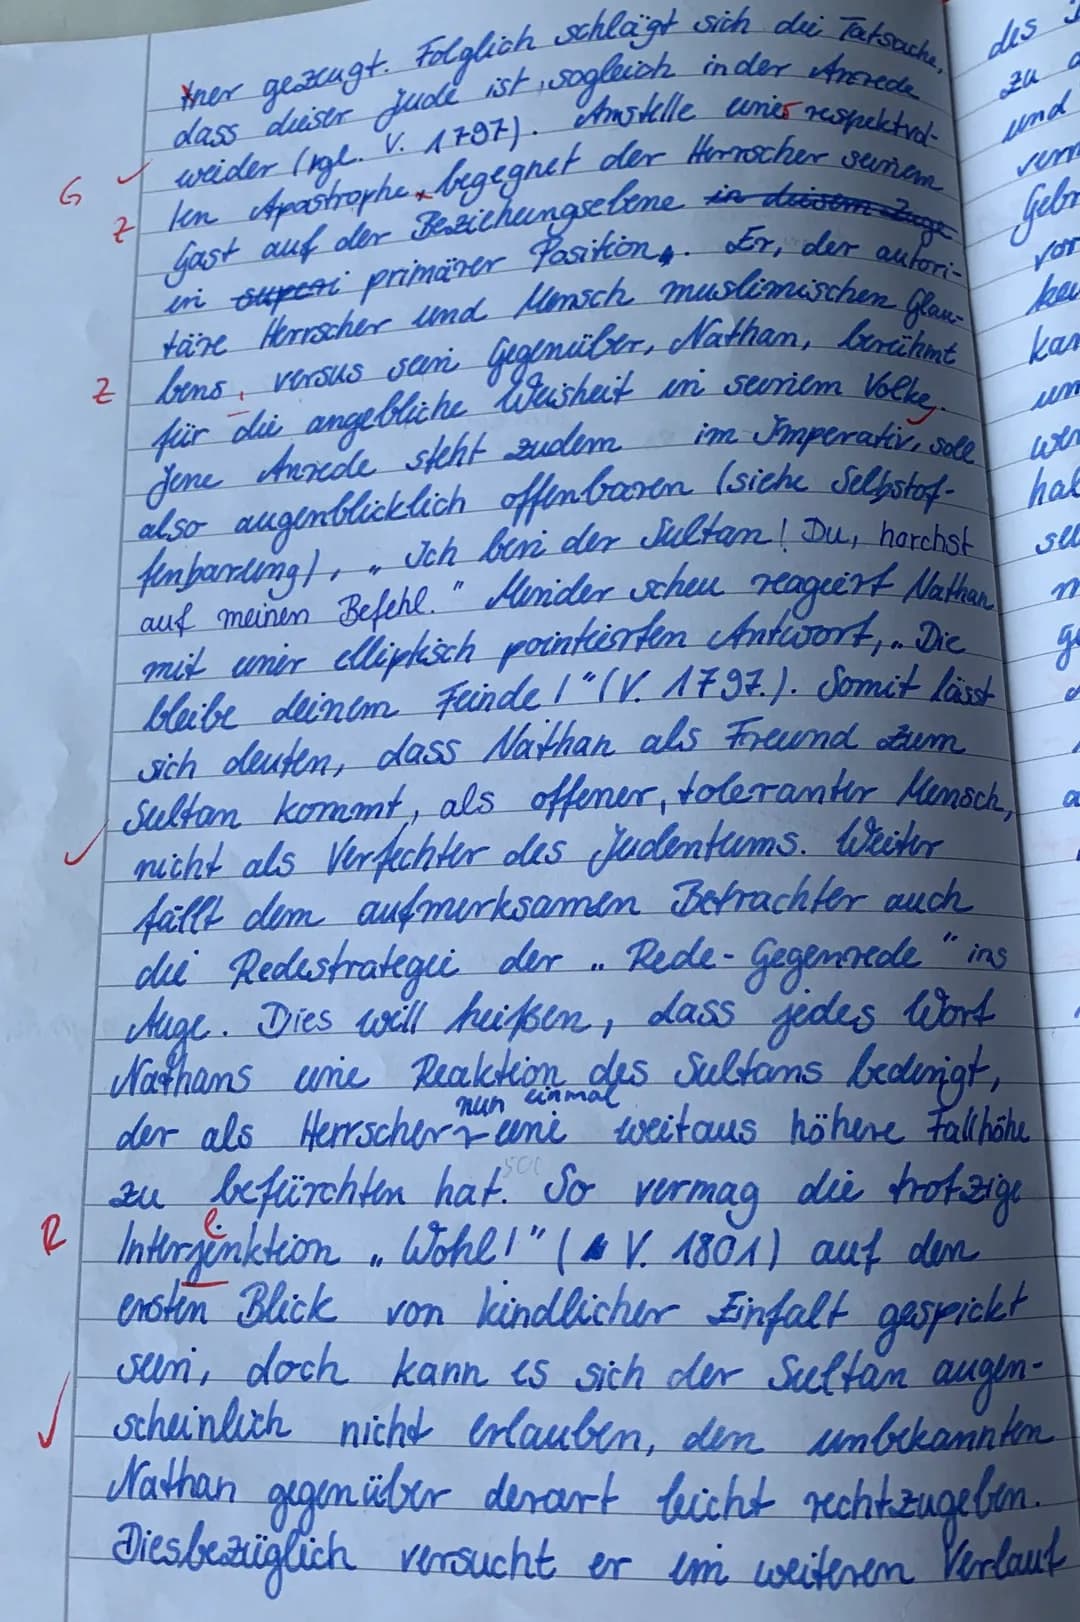 iner gezeugt. Folglich schlägt sich die Tatsache,
dass dieser Jude ist, sogleich in der Anrede
weider (vgl. V. 1797). Anstelle einer respektvol-
G
len Apostrophe, begegnet der Herrscher seinem
Z
Gast auf der Beziehungsebene in diesem Zuge
in superi primärer Position. Er, der autori-
täre Herrscher und Mensch muslimischen Glau-
Z
bens, versus sein Gegenüber, Nathan, berühmt
für die angebliche Weisheit in seinem Volke.
Jene Anrede steht zudem im Imperativ, soll
also augenblicklich offenbaren (siehe Selbstof-
fenbarung), „Ich bin der Sultan! Du, horchst
auf meinen Befehl." Minder scheu reagiert Nathan
mit einer elliptisch pointierten Antwort, „Die
bleibe deinem Feinde!" (V. 1797.). Somit lässt
sich deuten, dass Nathan als Freund zum
Sultan kommt, als offener, toleranter Mensch,
nicht als Verfechter des Judentums. Weiter
fällt dem aufmerksamen Betrachter auch
die Redestrategie der „Rede-Gegenrede" ins
Auge. Dies will heißen, dass jedes Wort
Nathans eine Reaktion des Sultans bedingt,
nun einmal
der als Herrscher eine weitaus höhere Fallhöhe
zu befürchten hat. So vermag die trotzige
R
Interjenktion „Wohl!" (V. 1801) auf den
ersten Blick von kindlicher Einfalt gespickt
sein, doch kann es sich der Sultan augen-
scheinlich nicht erlauben, den unbekannten
Nathan gegenüber derart leicht rechtzugeben.
Diesbezüglich versucht er im weiteren Verlauf
des
zu
und
vor